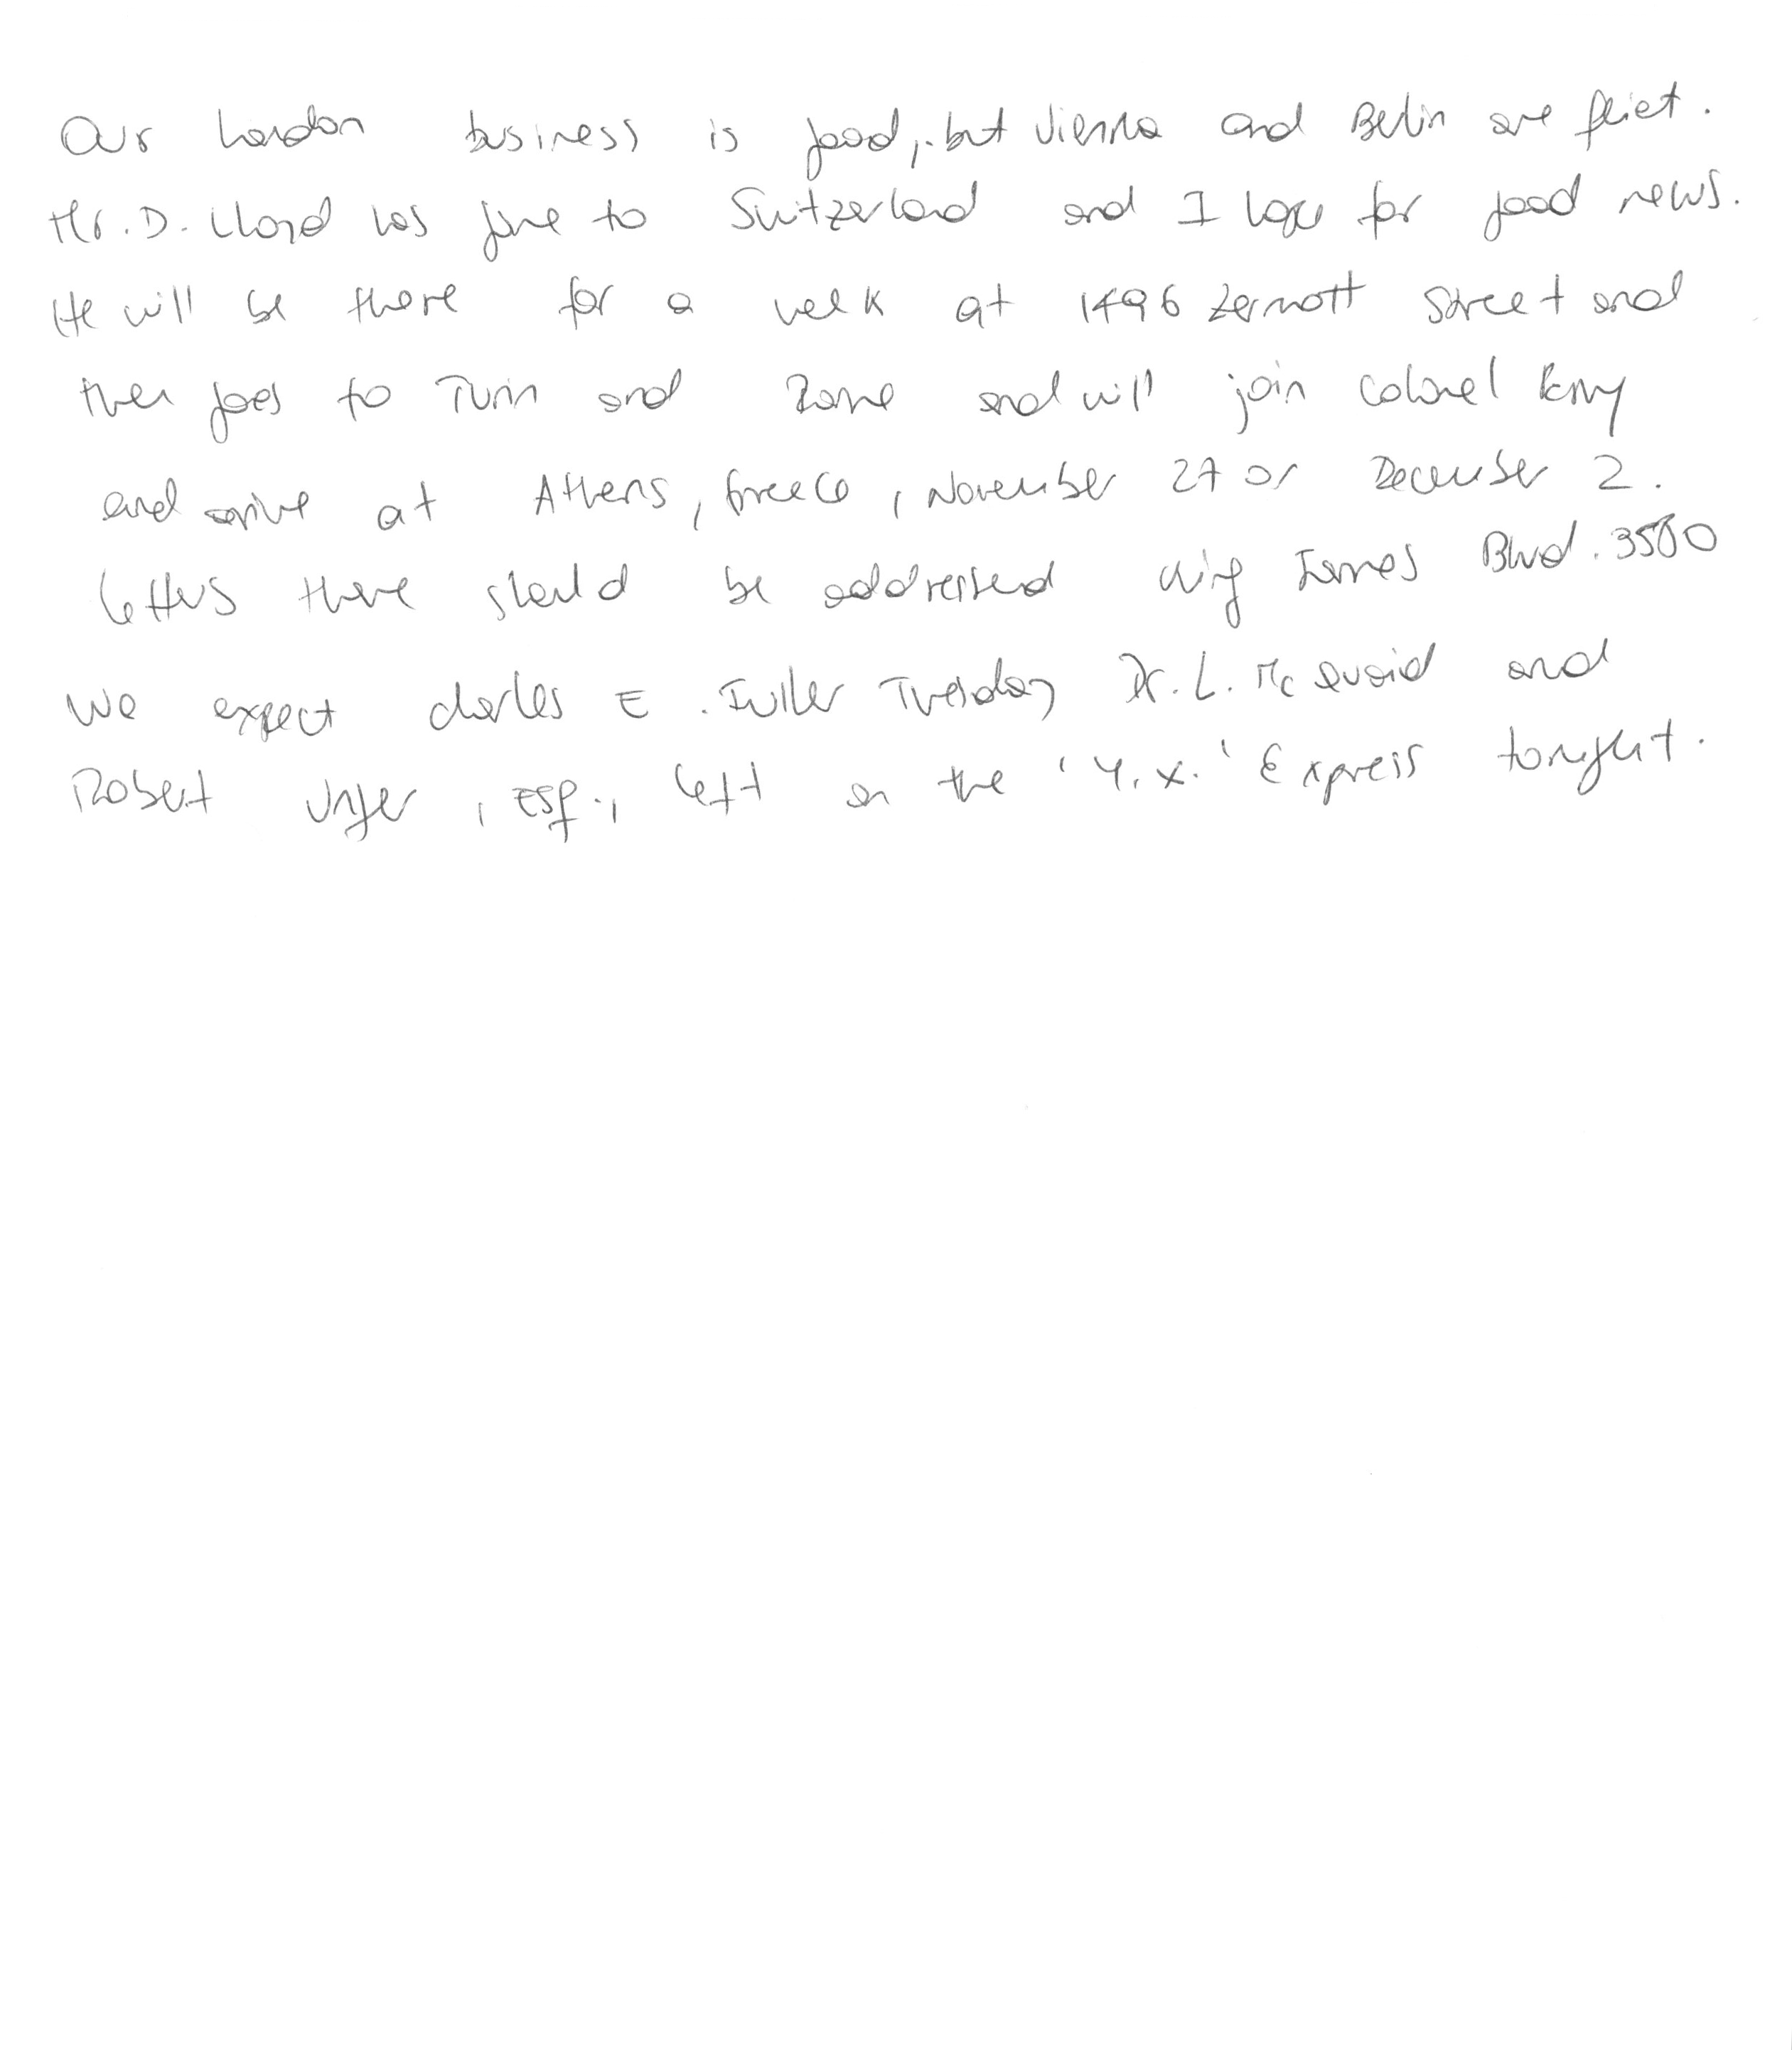 Our London business is good, but Vienna and Berlin are quiet.
Mr. D. Lloyd has gone to Switzerland and I hope for good news.
He will be there for a week at 1496 Zermott Street and
then goes to Turin and Rome and will join Colonel Parry
and arrive at Athens, Greece, November 27 or December 2.
Letters there should be addressed King James Blvd. 3580
We expect Charles E. Fuller Tuesday Dr. L. Mc Quaid and
Robert Unger, Esq., left on the 'Y.X.' Express tonight.